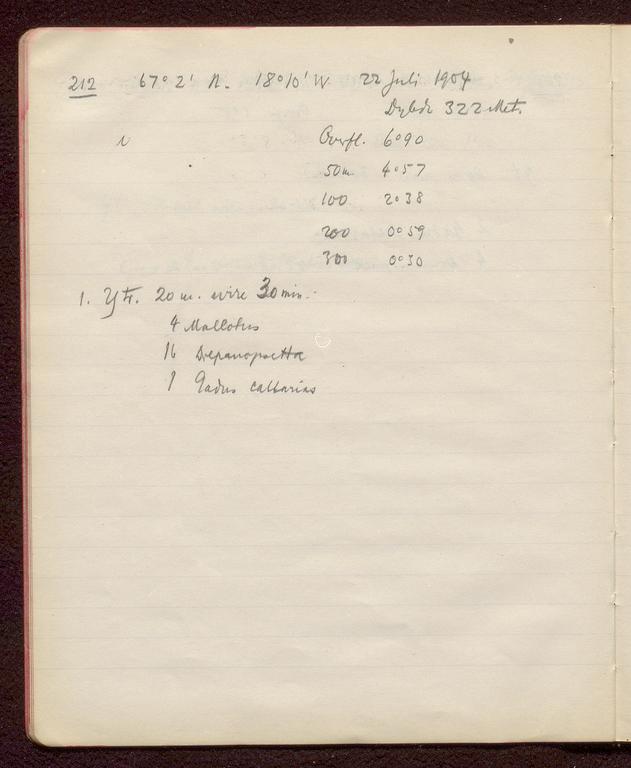 212 67° 2' N. 18° 10' W 22 Juli 1904
Dybde 322 Met.
Overfl. 6°90
50m 4°57
100 2°38
200 0°59
300 0°30
1. Yt. 20 m. wire 30 min.
4 Mallotus
16 Drepanopsetta
1 Gadus callarias